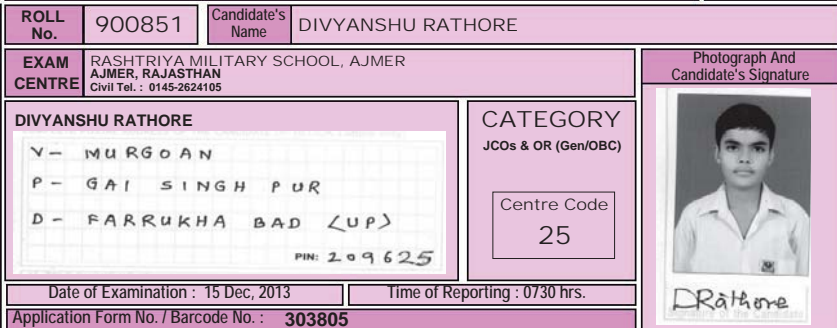 ROLL No. 900851 Candidate's Name DIVYANSHU RATHORE
EXAM CENTRE RASHTRIYA MILITARY SCHOOL, AJMER
AJMER, RAJASTHAN
Civil Tel. : 0145-2624105
Photograph And
Candidate's Signature
DIVYANSHU RATHORE
V- MURGOAN
P- GAI SINGH PUR
D- FARRUKHA BAD (UP)
PIN: 209625
CATEGORY
JCOs & OR (Gen/OBC)
Centre Code
25
DRathore
Signature of the Candidate
Date of Examination : 15 Dec, 2013
Time of Reporting : 0730 hrs.
Application Form No. / Barcode No. : 303805